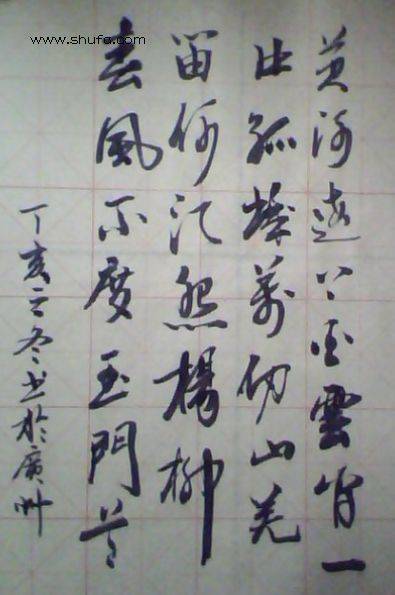 www.shufa.com
黄河遠上白雲间一
片孤城萬仞山羌
笛何须怨楊柳
春風不度玉門关
丁亥立冬书於廣州